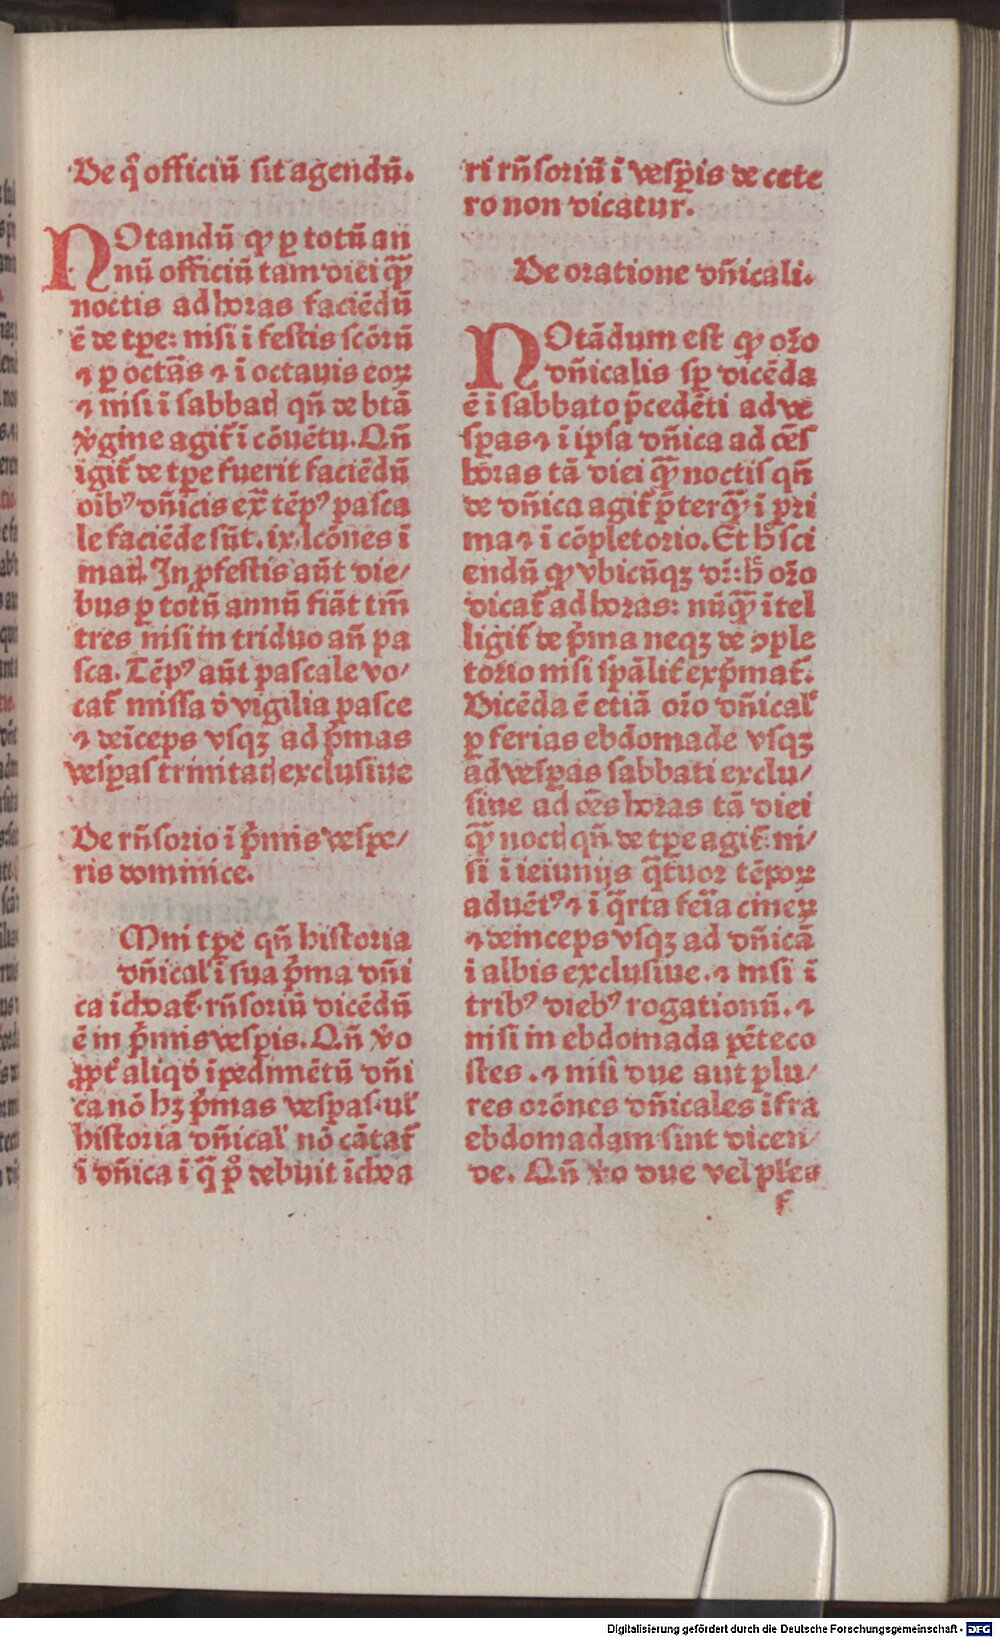 De qͦ officiū sit agendū.
NOtandū ꝙ ꝑ totū an
nū officiū tam diei ꝙ̄
noctis ad horas faciēdū
ē de tꝑe: nisi ī festis scōrū
⁊ ꝑ octās ⁊ ī octauis eoꝝ
⁊ nisi ī sabbatꝭ qn̄ de btā
v̓gine agit᷑ ī cōuētu. Qn̄
igit᷑ de tꝑe fuerit faciēdū
oībꝰ dn̄icis ex̄ tēpꝰ pasca
le faciēde sūt. ix. lcōnes ī
matꝭ. In ꝓfestis aūt die/
bus ꝑ totū annū fiāt tm̄
tres nisi in triduo an̄ pa
sca. Tēpꝰ aūt pascale vo/
cat᷑ missa ī vigilia pasce
⁊ deīceps vsqꝫ ad p̓mas
vesꝑas trinitatꝭ exclusiue
De rn̄sorio ī p̓mis vespe/
ris dominice.
Omni tꝑe qn̄ historia
dn̄ical' ī sua p̓ma dn̄i
ca īchoat᷑ rn̄soriū dicēdū
ē in p̓mis vesꝑis. Qn̄ v̓o
ꝓpt᷑ aliqd̓ īpedimētū dn̄i
ca nō hꝫ p̓mas vesꝑas. ul'
historia dn̄ical' nō cātat᷑
ī dn̄ica ī q̄ pͦ debuit īchoa
ri rn̄soriū ī vesꝑis de cete
ro non dicatur.
De oratione dn̄icali.
NOtādum est ꝙ or̄o
dn̄icalis sꝑ dicēda
ē ī sabbato p̄cedēti ad ve
sꝑas ⁊ ī ipsa dn̄ica ad oēs
horas tā diei ꝙ̄ noctis qn̄
de dn̄ica agit᷑ p̄terꝙ̄ ī pri
ma ⁊ ī cōpletorio. Et h̓ sci
endū ꝙ vbicūqꝫ dr̄: h̓ or̄o
dicat᷑ ad horas: nūꝙ̄ ītel
ligit᷑ de p̓ma neqꝫ de ꝯple
torio nisi sꝑalit᷑ exp̓mat᷑.
Dicēda ē etiā or̄o dn̄ical'
ꝑ ferias ebdomade vsqꝫ
ad vesꝑas sabbati exclu/
siue ad oēs horas tā diei
ꝙ̄ noctꝭ qn̄ de tꝑe agit᷑: ni/
si ī ieiunijs q̄tuor tēpoꝝ
aduētꝰ ⁊ ī q̄rta feīa cineꝝ
⁊ deinceps vsqꝫ ad dn̄icā
ī albis exclusiue. ⁊ nisi ī
tribꝰ diebꝰ rogationū. ⁊
nisi in ebdomada pēteco
stes. ⁊ nisi due aut plu/
res orōnes dn̄icales īfra
ebdomadam sint dicen/
de. Qn̄ v̓o due vel pl'es
f
Digitalisierung gefördert durch die Deutsche Forschungsgemeinschaft - DFG